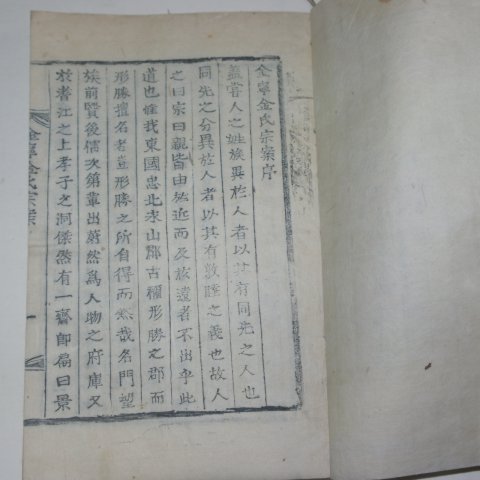 金寧金氏宗案序
蓋嘗人之姓族異於人者以其有同先之人也
同先之分異於人者以其有敦睦之義也故人
之曰宗曰親皆由於近而及於遠者不出乎此
道也惟我東國忠北永山郡古稱形勝之郡而
形勝擅名者豈形勝之所自得而然哉名門望
族前賢後儒次第輩出蔚然爲人物之府庫又
於者江之上孝子之洞傑然有一齋卽扁曰景
金寧金氏宗案
一